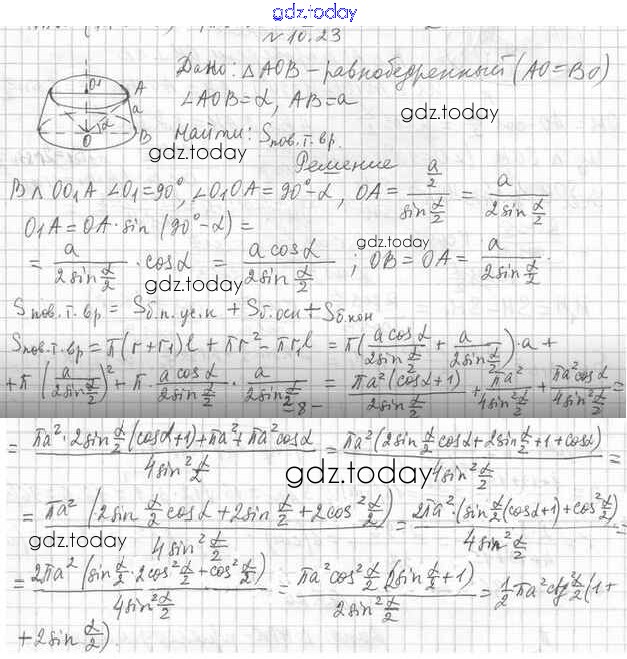 gdz.today
№ 10.23
Дано: △AOB – равнобедренный (AO=BO)
∠AOB=α, AB=a
gdz.today
Найти: Sпов.т.вр.
gdz.today
Решение
В △OO₁A ∠O₁=90°, ∠O₁OA=90°-α, OA = (a/2)/(sin α/2) = a/(2sin α/2)
O₁A = OA·sin(90°-α) =
gdz.today
= a/(2sin α/2) · cosα = (a cosα)/(2sin α/2) ; OB = OA = a/(2sin α/2).
gdz.today
Sпов.т.вр = Sб.п.ус.к + Sб.осн + Sб.кон
Sпов.т.вр = π(r+r₁)l + πr² - πr₁l = π((a cosα)/(2sin α/2) + a/(2sin α/2))·a +
+ π(a/(2sin α/2))² + π·(a cosα)/(2sin α/2) · a/(2sin α/2) = (πa²(cosα+1))/(2sin α/2) + πa²/(4sin² α/2) + (πa²cosα)/(4sin² α/2) =
- 8 -
= (πa²·2sin α/2 (cosα+1) + πa² + πa²cosα)/(4sin² α/2) = (πa²(2sin α/2 cosα + 2sin α/2 + 1 + cosα))/(4sin² α/2) =
gdz.today
= (πa²(2sin α/2 cosα + 2sin α/2 + 2cos² α/2))/(4sin² α/2) = (2πa²·(sin α/2 (cosα+1) + cos² α/2))/(4sin² α/2) =
gdz.today
= (2πa²(sin α/2 · 2cos² α/2 + cos² α/2))/(4sin² α/2) = (πa²cos² α/2 (2sin α/2 + 1))/(2sin² α/2) = 1/2 πa²ctg² α/2 (1+
+ 2sin α/2).
gdz.today
O₁
A
a
α
O
B